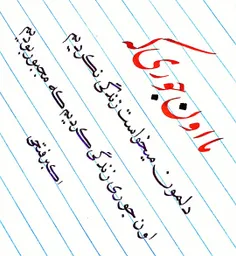 ما اون جوری که
دلمون میخواست زندگی نکردیم
اون جوری زندگی کردیم که مجبور بودیم
اکبر فتحی